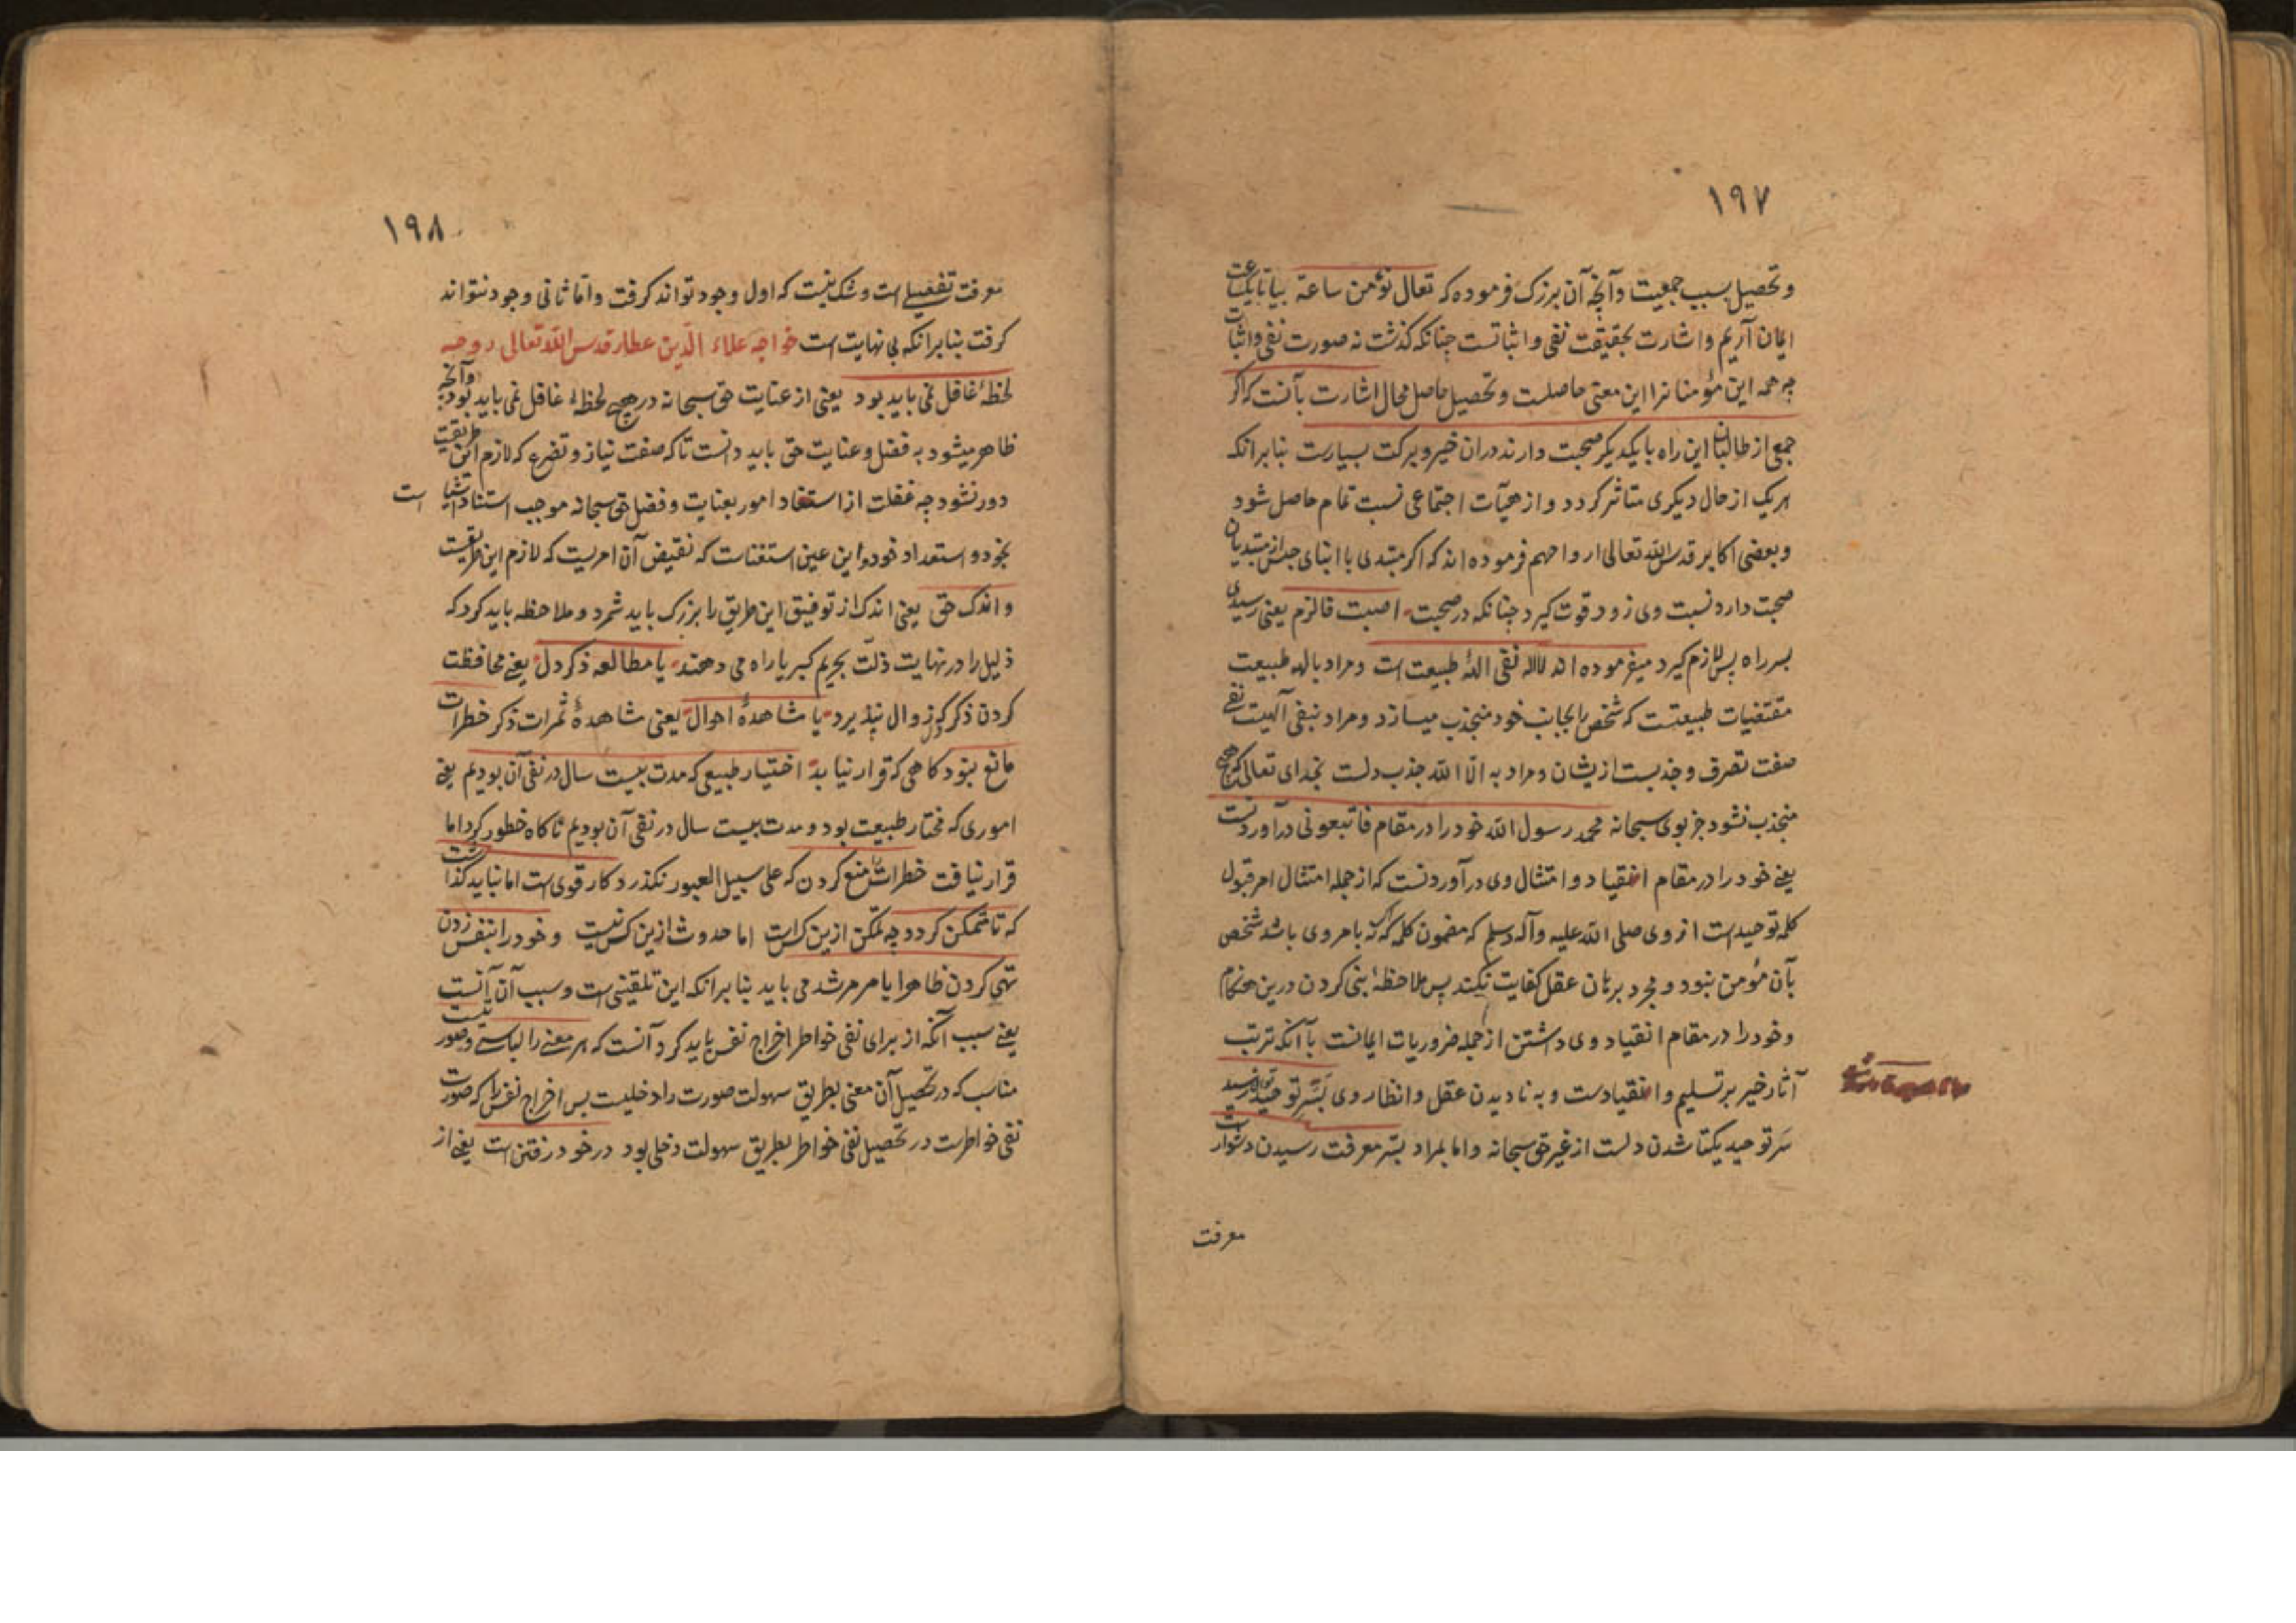 ۱۹۷
و تحصیل سبب جمعیت و آنچه آن بزرک فرموده که تعال نؤمن ساعة بیا تا یکساعت
ایمان آریم و اشارت بحقیقت نفی و اثباتست چنانکه کذشت نه صورت نفی و اثبات
چه همه این مؤمنانرا این معنی حاصلست و تحصیل حاصل محال اشارت بآنست که اکر
جمعی از طالبان این راه با یکدیکر صحبت دارند دران خیر و برکت بسیارست بنابرانکه
هر یک از حال دیکری متاثر کردد و از هیآت اجتماعی نسبت تمام حاصل شود
و بعضی اکابر قدس الله تعالی ارواحهم فرموده اند که اکر مبتدی با ابنای جنس از مبتدیان
صحبت دارد نسبت وی زود قوت کیرد چنانکه در صحبت اصبت فالزم یعنی رسیدی
بسر راه پس لازم کیر د میفرموده اند لااله نفی الهٔ طبیعت است و مراد باله طبیعت
مقتضیات طبیعتست که شخص را بجانب خود منجذب میسازد و مراد بنفی آلهیت نفی
صفت تصرف و جذبست ازیشان و مراد به الا الله جذب دلست بخدای تعالی که بهیچ
منجذب نشود جز بوی سبحانه محمد رسول الله خود را در مقام فاتبعونی در آوردنست
یعنی خود را در مقام انقیاد و امتثال وی در آوردنست که از جمله امتثال امر قبول
کلمه توحید است از وی صلی الله علیه وآله وسلم که مضمون کلمه که نه بامر وی باشد شخص
بآن مؤمن نبود و مجرد برهان عقل کفایت نکند پس ملاحظهٔ نبی کردن درین هنکام
و خود را در مقام انقیاد وی داشتن از جمله ضروریات ایمانست با آنکه ترتب
آثار خیر بر تسلیم و انقیادست و به نادیدن عقل و انظار وی بسر توحید توان رسید
سر توحید یکتا شدن دلست از غیر حق سبحانه و اما بمراد بسر معرفت رسیدن دشوارست
معرفت
۱۹۸
معرفت تفصیلی است و شک نیست که اول وجود تواند کرفت و اما ثانی وجود نتواند
کرفت بنابرانکه بی نهایت است خواجه علاء الدین عطار قدس الله تعالی روحه
لحظهٔ غافل نمی باید بود یعنی از عنایت حق سبحانه در هیچ لحظهٔ غافل نمی باید بود و آنچه
ظاهر میشود به فضل و عنایت حق باید دانست تا که صفت نیاز و تضرع که لازم این طریقت است
دور نشود چه غفلت از استناد امور بعنایت و فضل حق سبحانه موجب استناد اشیا
بخود و استعداد خود و این عین استغناست که نقیض آن امریست که لازم این طریقت
و اندک حق یعنی اندک از توفیق این طریق را بزرک باید شمرد و ملاحظه باید کرد که
ذلیل را در نهایت ذلت بحریم کبریا راه می دهند یا مطالعه ذکر دل یعنی محافظت
کردن ذکر که زوال نپذیرد یا مشاهدهٔ احوال یعنی مشاهدهٔ ثمرات ذکر خطرات
مانع نبود کاهی که قرار نیابد اختیار طبیعی که مدت بیست سال در نفی آن بودیم یعنی
اموری که مختار طبیعت بود و مدت بیست سال در نفی آن بودیم ناکاه خطور کرد اما
قرار نیافت خطرات را منع کردن که علی سبیل العبور نکذرد کار قوی است اما نباید کذاشت
که تا متمکن کردد چه تمکن ازین کس است اما حدوث ازین کس نیست و خود را بنفس زدن
تهی کردن ظاهرا بامر مرشد می باید بنابرانکه این تلقینی است و سبب آن آنست
یعنی سبب آنکه از برای نفی خواطر اخراج نفس باید کرد آنست که هر معنی را لباسی و صورتیست
مناسب که در تحصیل آن معنی بطریق سهولت صورت را دخلیست پس اخراج نفس را که صورت
نفی خواطرست در تحصیل نفی خواطر بطریق سهولت دخلی بود در خود رفتن است یعنی از